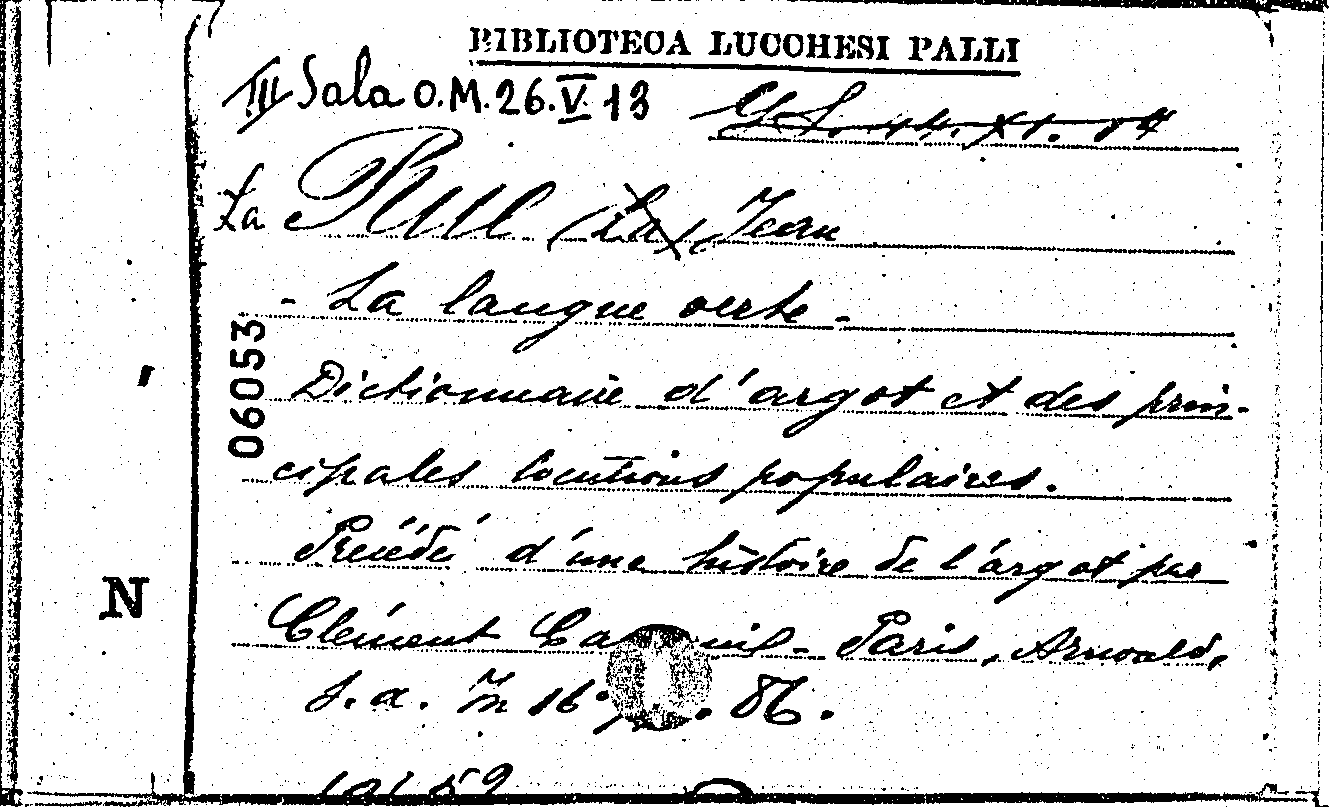 BIBLIOTECA LUCCHESI PALLI
III Sala O.M.26.V.13
La Rue (La) Jean
- La langue verte -
06053
Dictionnaire d'argot et des prin-
cipales locutions populaires.
Précédé d'une histoire de l'argot par
Clément - Paris, Arnould,
s.a. In 16° . 86.
N